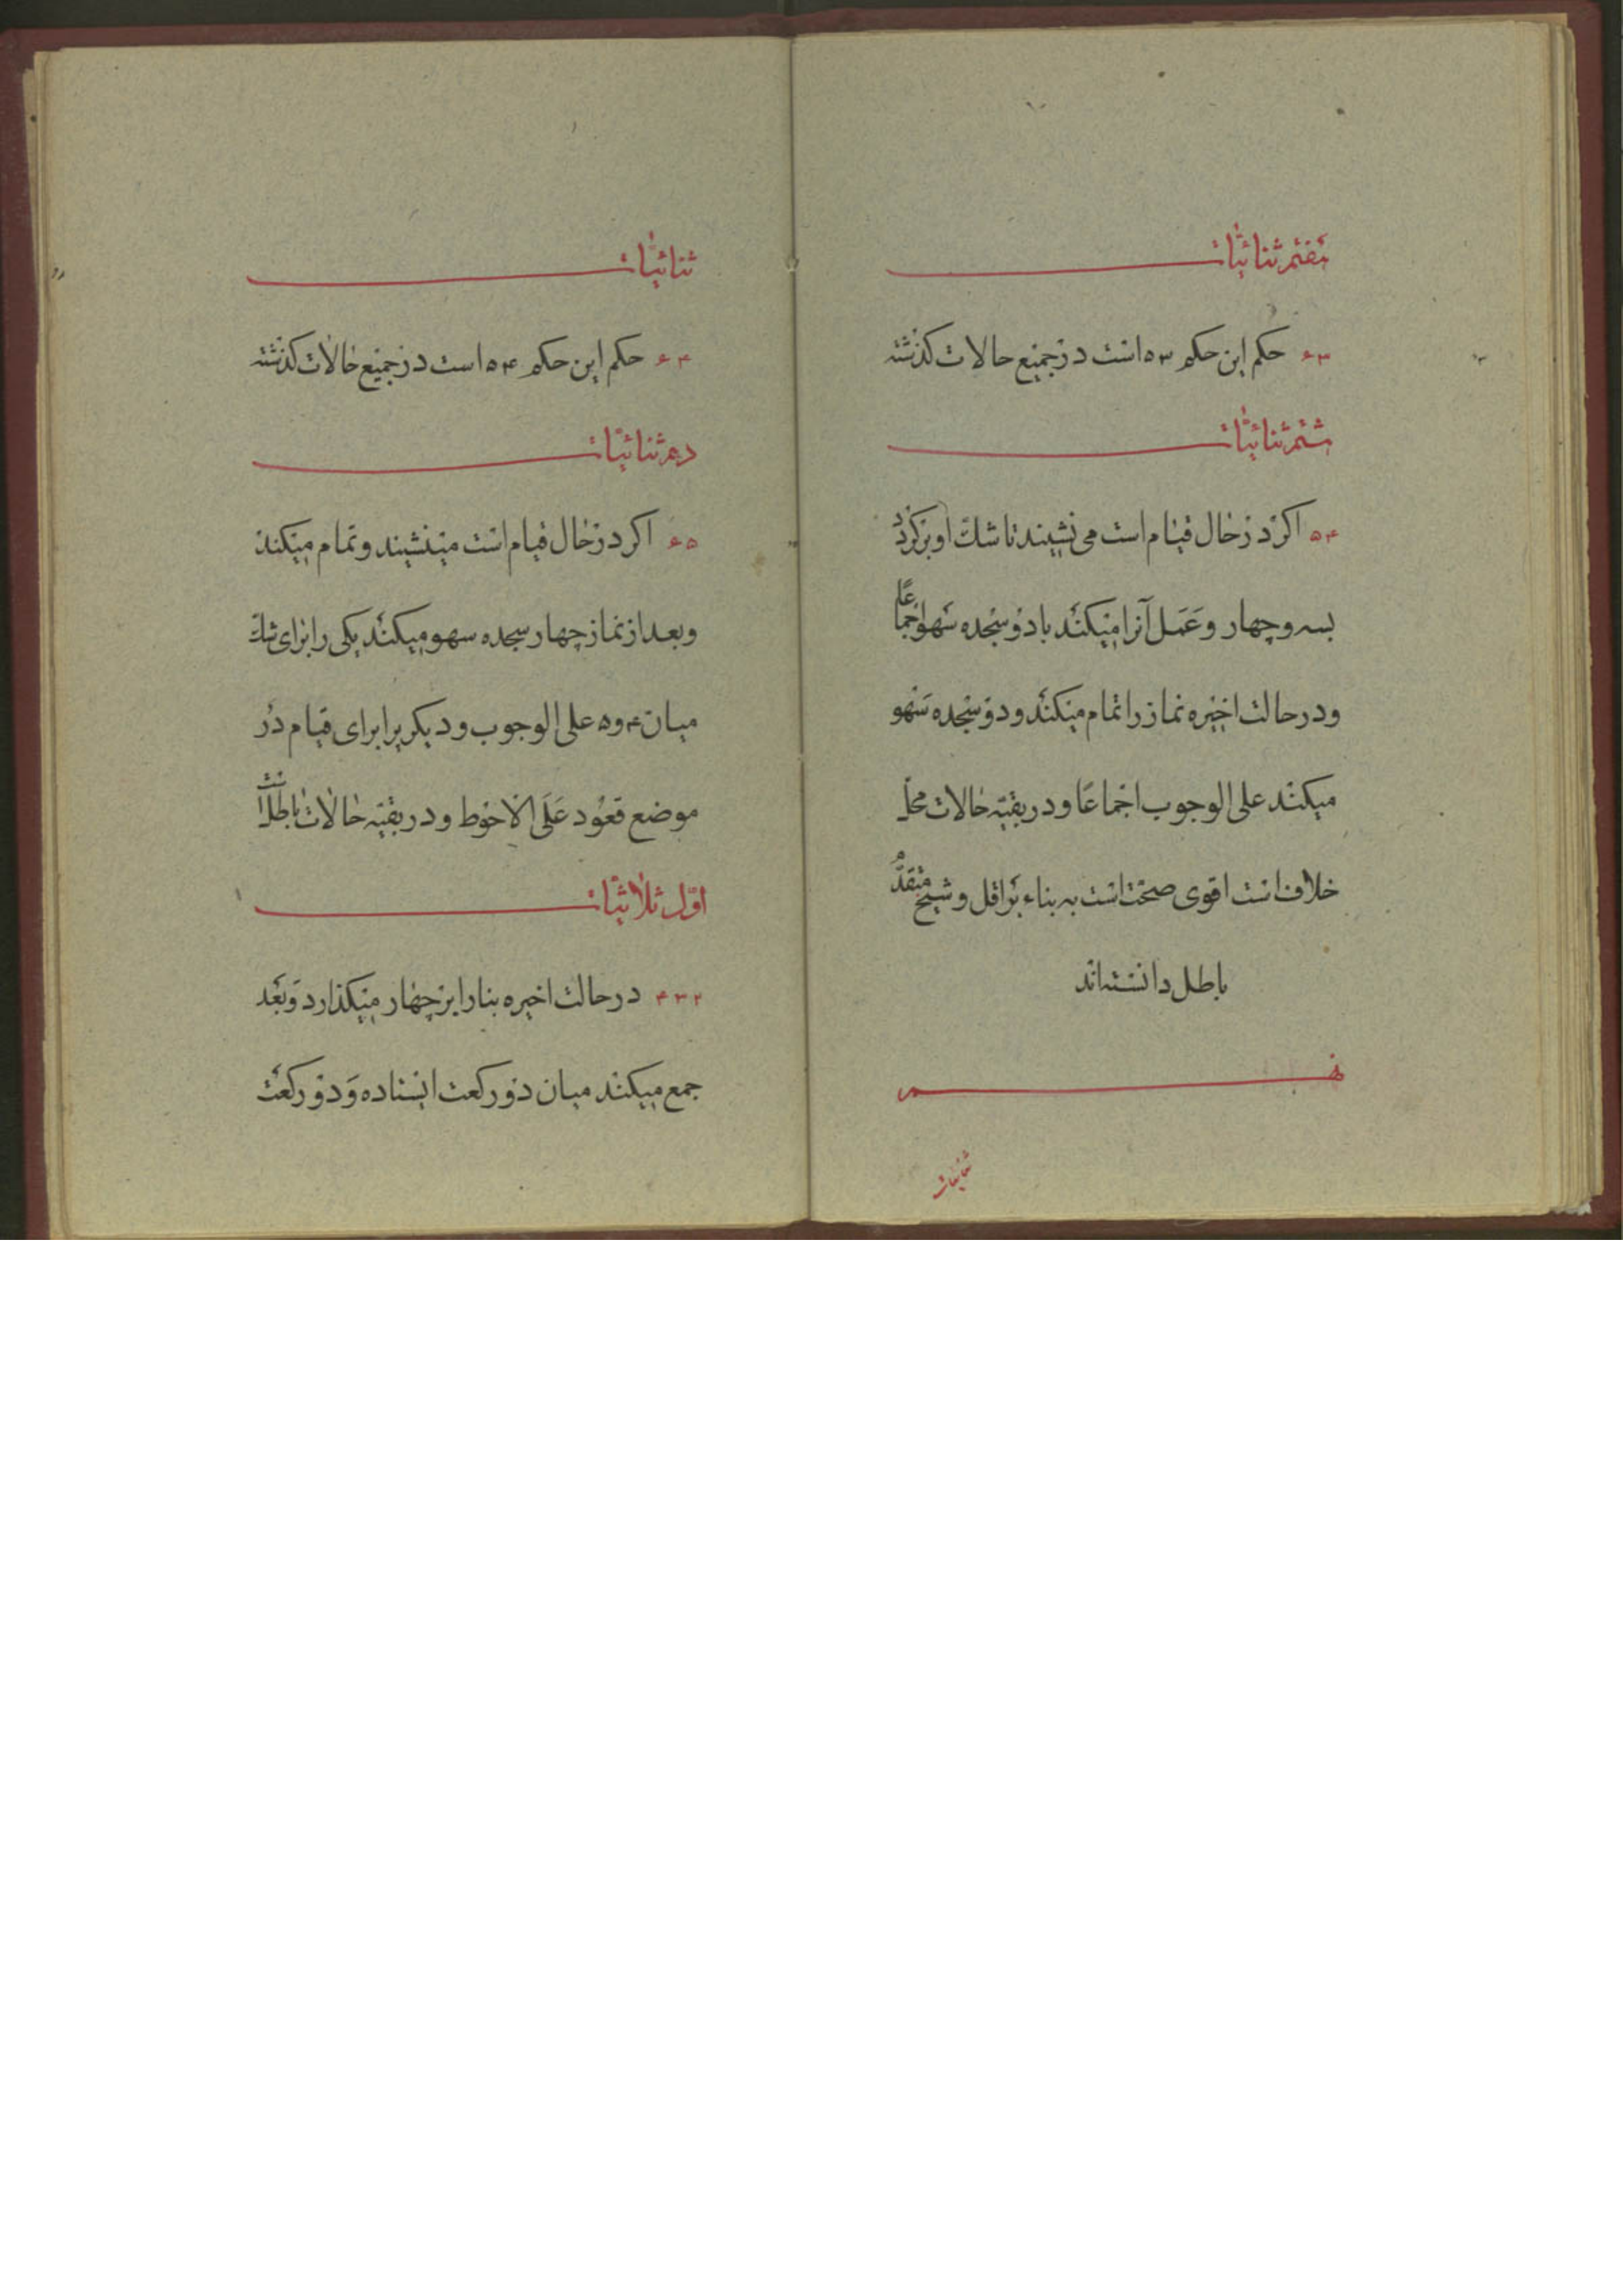 هفتم ثنائیات
۶۳ حکم این حکم ۵۳ است در جمیع حالات کذشته
هشتم ثنائیات
۵۴ اکر در حال قیام است می نشیند تا شک او برکردد
بسه و چهار و عمل آنرا میکند با دو سجده سهو اجماعا
و در حالت اخیره نماز را تمام میکند و دو سجده سهو
میکند علی الوجوب اجماعا و در بقیّه حالات محلّ
خلاف است اقوی صحّت است به بناء بر اقل و شیخ
باطل دانسته اند
نهم
ثنائیات
ثنائیات
۶۴ حکم این حکم ۵۴ است در جمیع حالات کذشته
دهم ثنائیات
۶۵ اکر در حال قیام است مینشیند و تمام میکند
و بعد از نماز چهار سجده سهو میکند یکی را برای شک
میان ۴ و ۵ علی الوجوب و دیکریرا برای قیام در
موضع قعود علی الاحوط و در بقیّه حالات باطل است
اوّل ثلاثیّات
۴۳۲ در حالت اخیره بنا را بر چهار میکذارد و بعد
جمع میکند میان دو رکعت ایستاده و دو رکعت